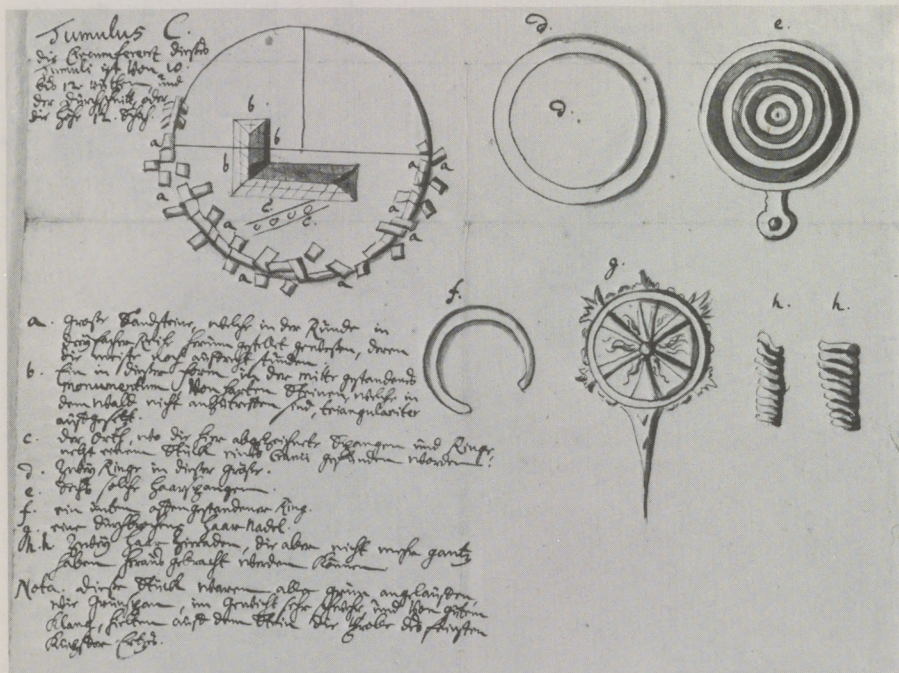 Tumulus C.
die Circumferent dieses
Tumuli ist von 10
bis 12 , und
der Durchschnitt, oder
die Höhe 12. Schuh.
b.
b
b
a
a
a
a
a
a
a
c.
c.
d.
d.
e.
f.
g.
h.
h.
a. große Sandsteine, welche in der Runde in
Reih herum gestelt gewesen, deren
die meiste noch aufrecht stunden.
b. Ein in dieser form in der mitte gestandenes
monumentum von harten Steinen, welche in
dem Wald nicht anzutreffen sind, triangulariter
aufgesetzt.
c. der Orth, wo die hier abgezeichnete Spangen und Ringe
nebst einem Stück eines gefunden worden.
d. Zwey Ringe in dieser größe.
e. Sechs solche Haarspangen.
f. ein unten offen gestandener Ring.
g. eine Haar Nadel.
h.h. Zwey Haar Zierraden, die aber nicht mehr gantz
haben heraus gebracht werden können.
Nota. diese Stück waren alle grün angelauffen
wie Grünspan, im Gewicht sehr schwehr, und von gutem
Klang, hielten auf dem Stein die Probe des feinsten
Kupffer Ertzes.